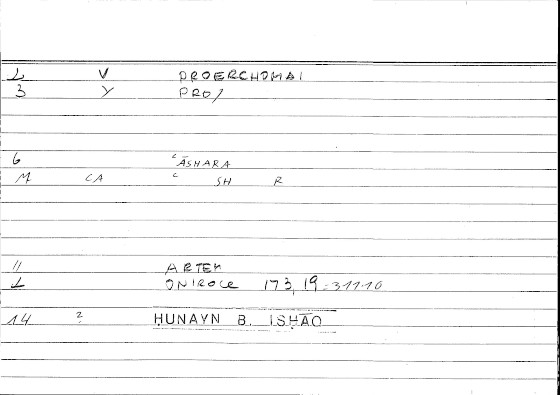 1 V PROERCHOMAI
3 Y PRO/
6 ʿĀSHARA
M CA ʿ SH R
11 ARTEM
1 ONIROCR 173, 19 = 311 10
14 ? ḤUNAYN B. ISḤĀQ